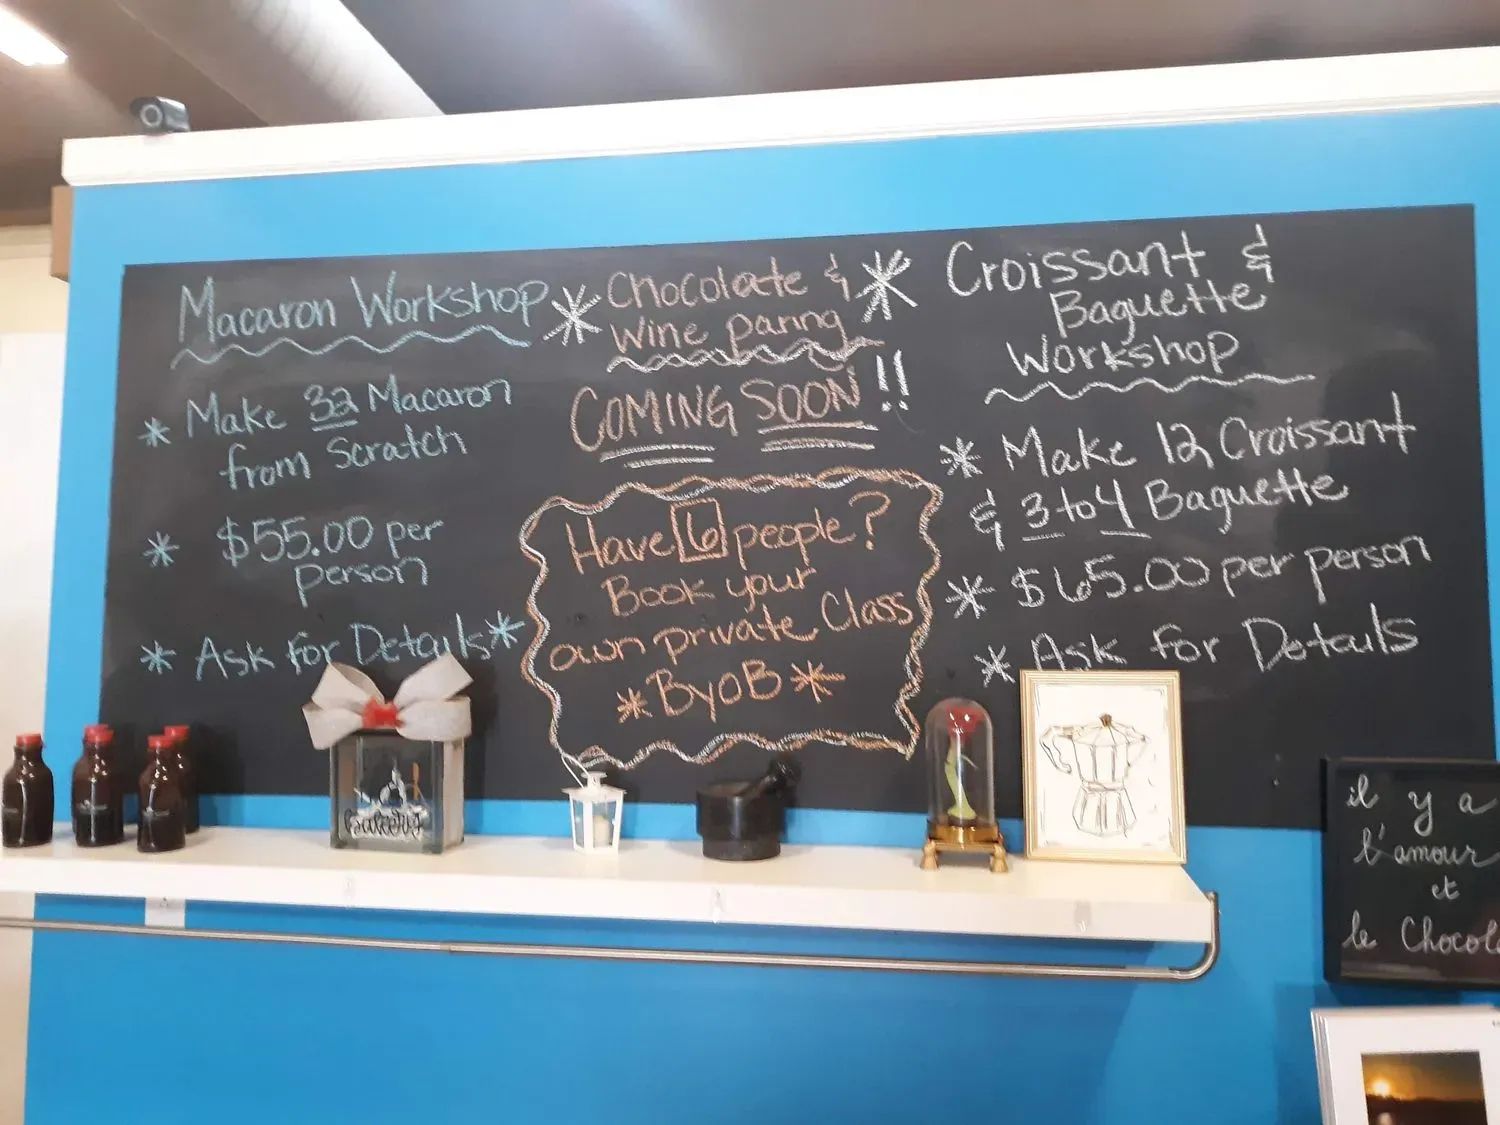 Macaron Workshop
* Make 32 Macaron
from Scratch
* $55.00 per
person
* Ask for Details *
* Chocolate & *
Wine paring
COMING SOON!!
Have 6 people?
Book your
own private Class
* ByOB *
Croissant &
Baguette
Workshop
* Make 12 Croissant
& 3 to 4 Baguette
* $65.00 per person
* Ask for Details
bakery
il y a
l'amour
et
le Chocol